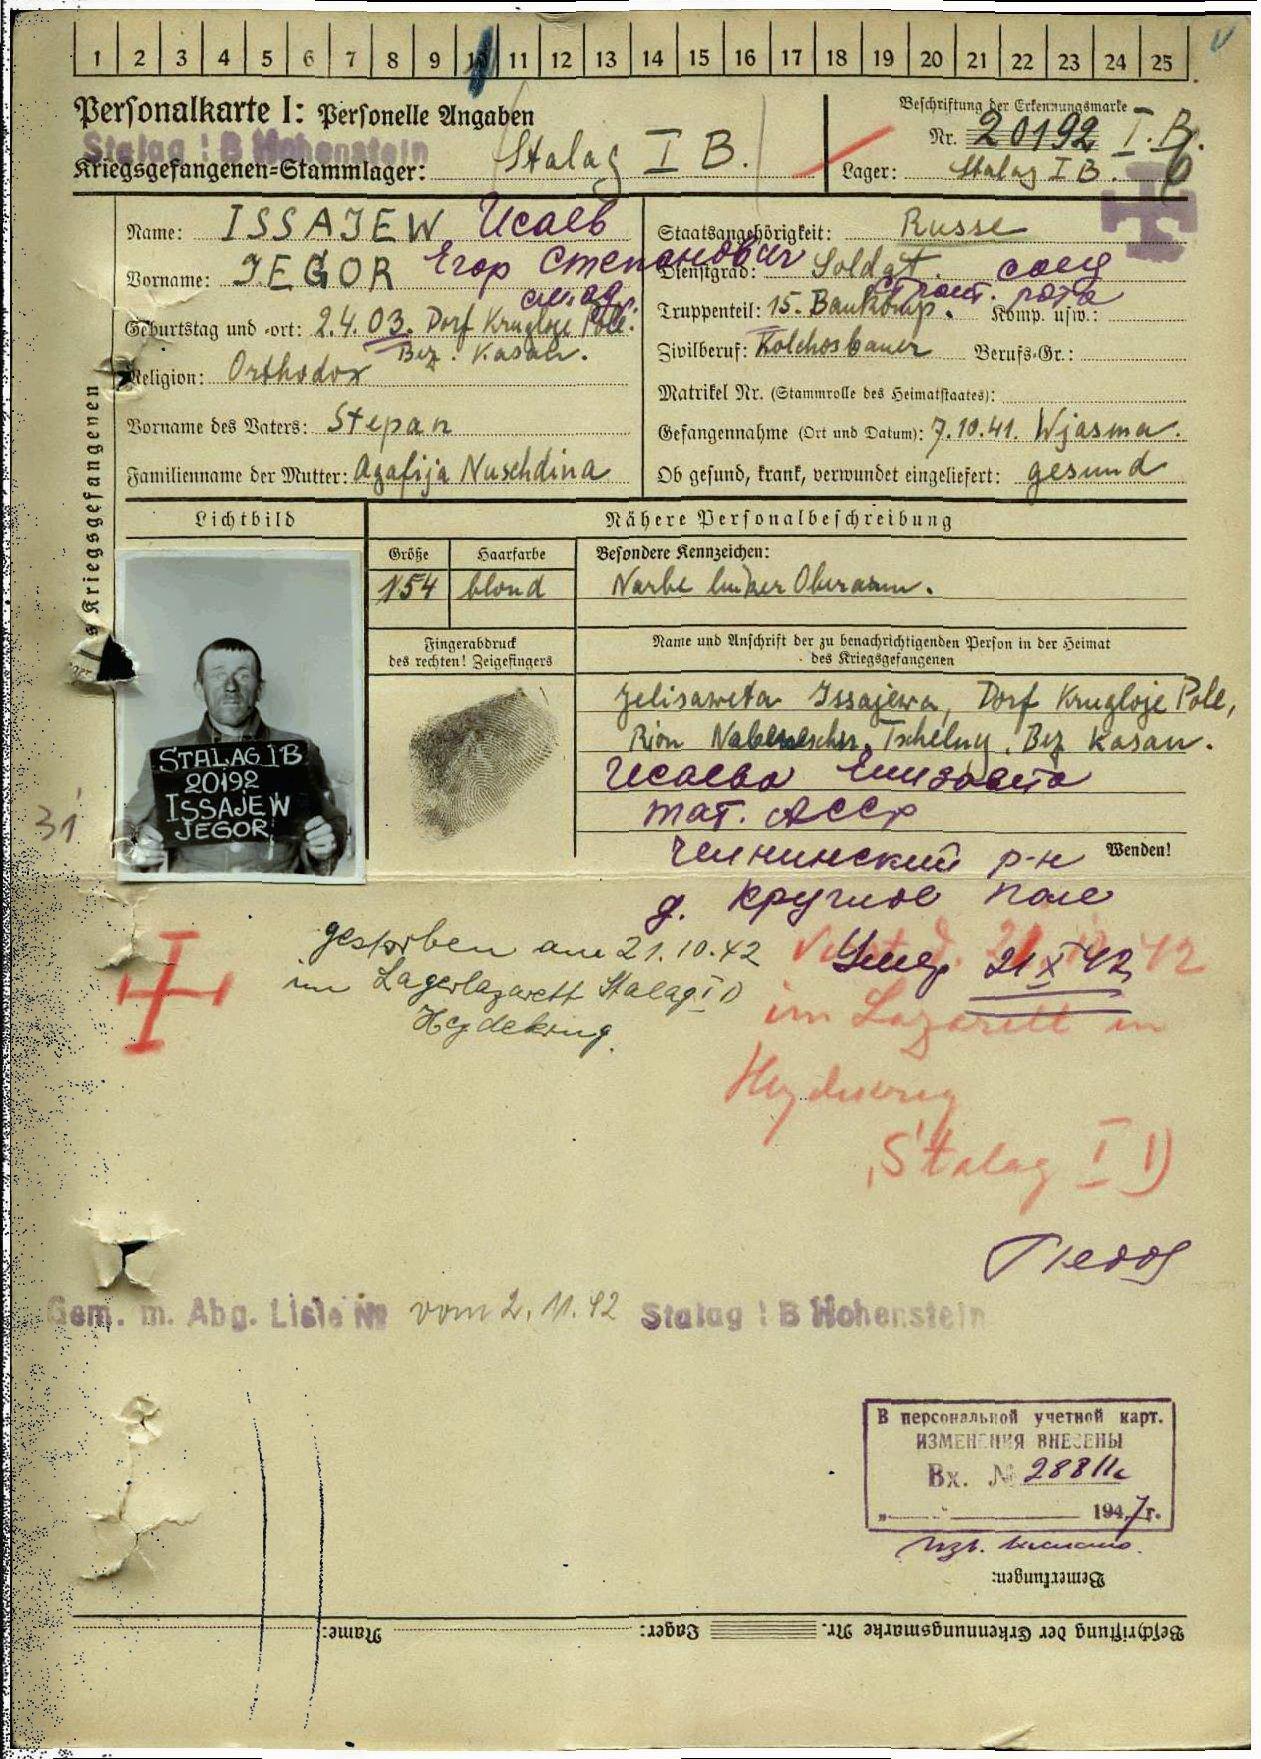 1 2 3 4 5 6 7 8 9 10 11 12 13 14 15 16 17 18 19 20 21 22 23 24 25
Personalkarte I: Personelle Angaben
Beschriftung der Erkennungsmarke
Stalag I B Hohenstein
Nr. 20192 I. B.
Kriegsgefangenen-Stammlager: Stalag I B.
Lager: Stalag I B.
Name: ISSAJEW Исаев
Staatsangehörigkeit: Russe
Vorname: JEGOR Егор Степанович
Dienstgrad: Soldat. солд
Geburtstag und -ort: 2.4.03. Dorf Krugloje Pole.
Bez. Kasan.
Truppenteil: 15. Baukomp. Komp. usw.:
строит. рота
Religion: Orthodox
Zivilberuf: Kolchosbauer Berufs-Gr.:
Matrikel Nr. (Stammrolle des Heimatstaates):
Vorname des Vaters: Stepan
Gefangennahme (Ort und Datum): 7.10.41. Wjasma.
Familienname der Mutter: Agafija Nuschdina
Ob gesund, krank, verwundet eingeliefert: gesund
s Kriegsgefangenen
Lichtbild
Nähere Personalbeschreibung
Größe Haarfarbe
Besondere Kennzeichen:
154 blond
Narbe linker Oberarm.
Fingerabdruck
des rechten! Zeigefingers
Name und Anschrift der zu benachrichtigenden Person in der Heimat
des Kriegsgefangenen
Jelisaweta Issajewa, Dorf Krugloje Pole,
Rion Tschelny. Bez Kasan.
Исаева Елизавета
тат. АССР
Челнинский р-н
Wenden!
д. Круглое поле
STALAG IB
20192
ISSAJEW
JEGOR
31
gestorben am 21.10.42
im Lagerlazarett Stalag I D
Heydekrug.
Умер 21 X 42
42
im Lazarett in
Heydekrug
Stalag I D
Gem. m. Abg. Liste Nr vom 2.11.42 Stalag I B Hohenstein
В персональной учетной карт.
ИЗМЕНЕНИЯ ВНЕСЕНЫ
Вх. № 28811с
„ “ 1947г.
Bemerkungen:
Beschriftung der Erkennungsmarke Nr. Lager: Name: